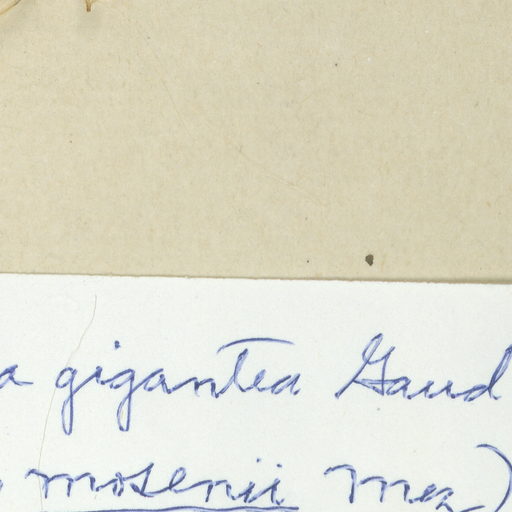 a gigantea Gaud
mosenii Mez)